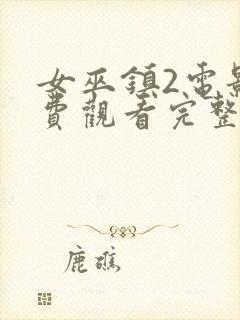 女巫鎮2電影
費觀看完整
鹿礁